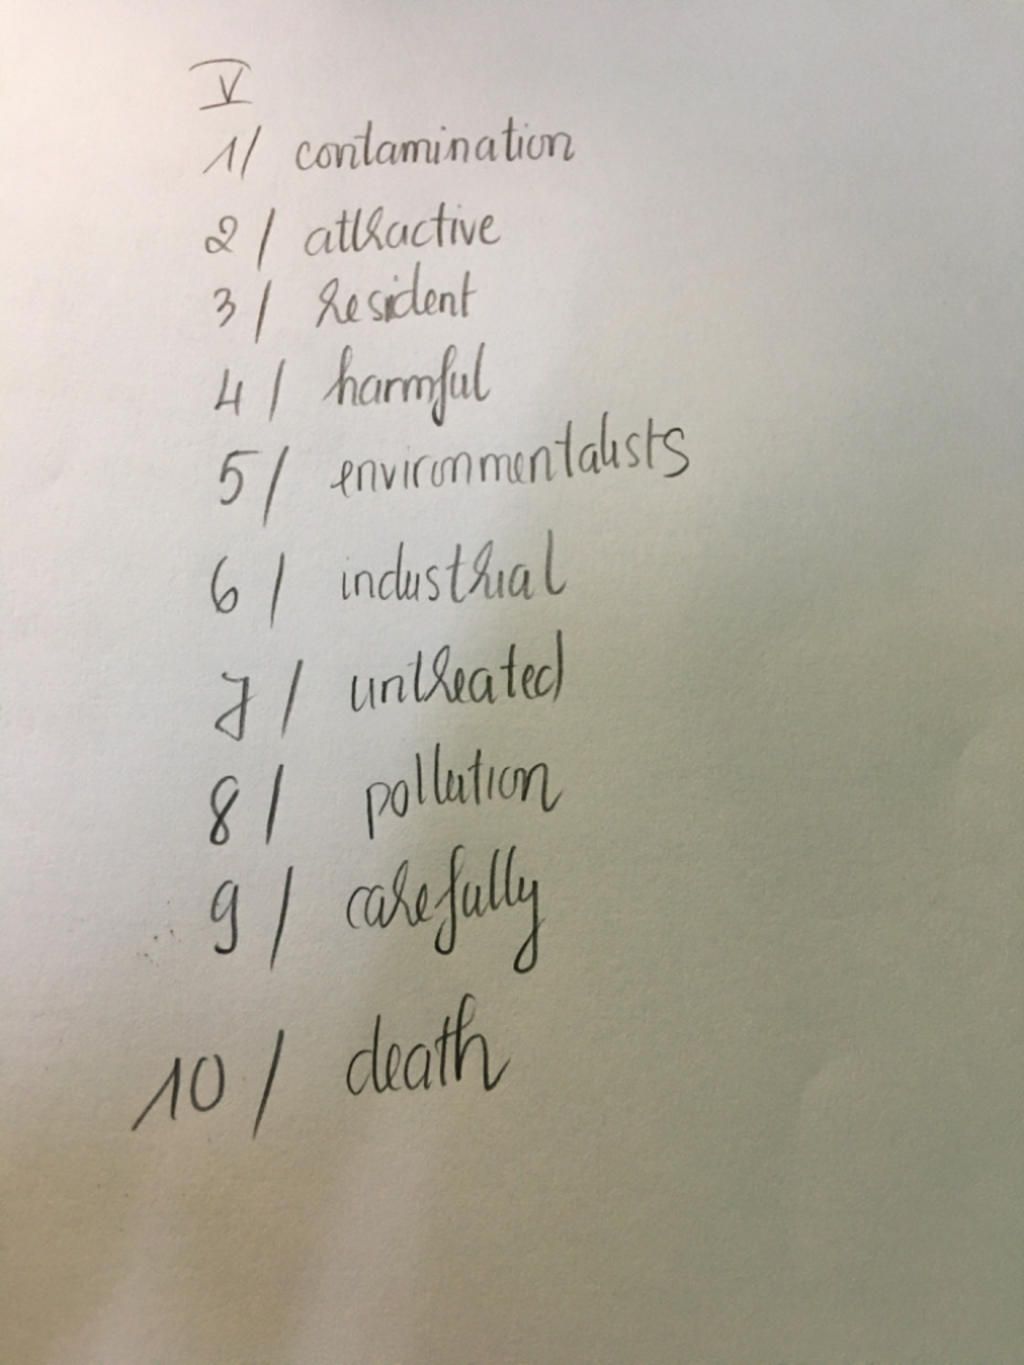 V
1/ contamination
2/ attractive
3/ resident
4/ harmful
5/ environmentalists
6/ industrial
7/ untreated
8/ pollution
9/ carefully
10/ death